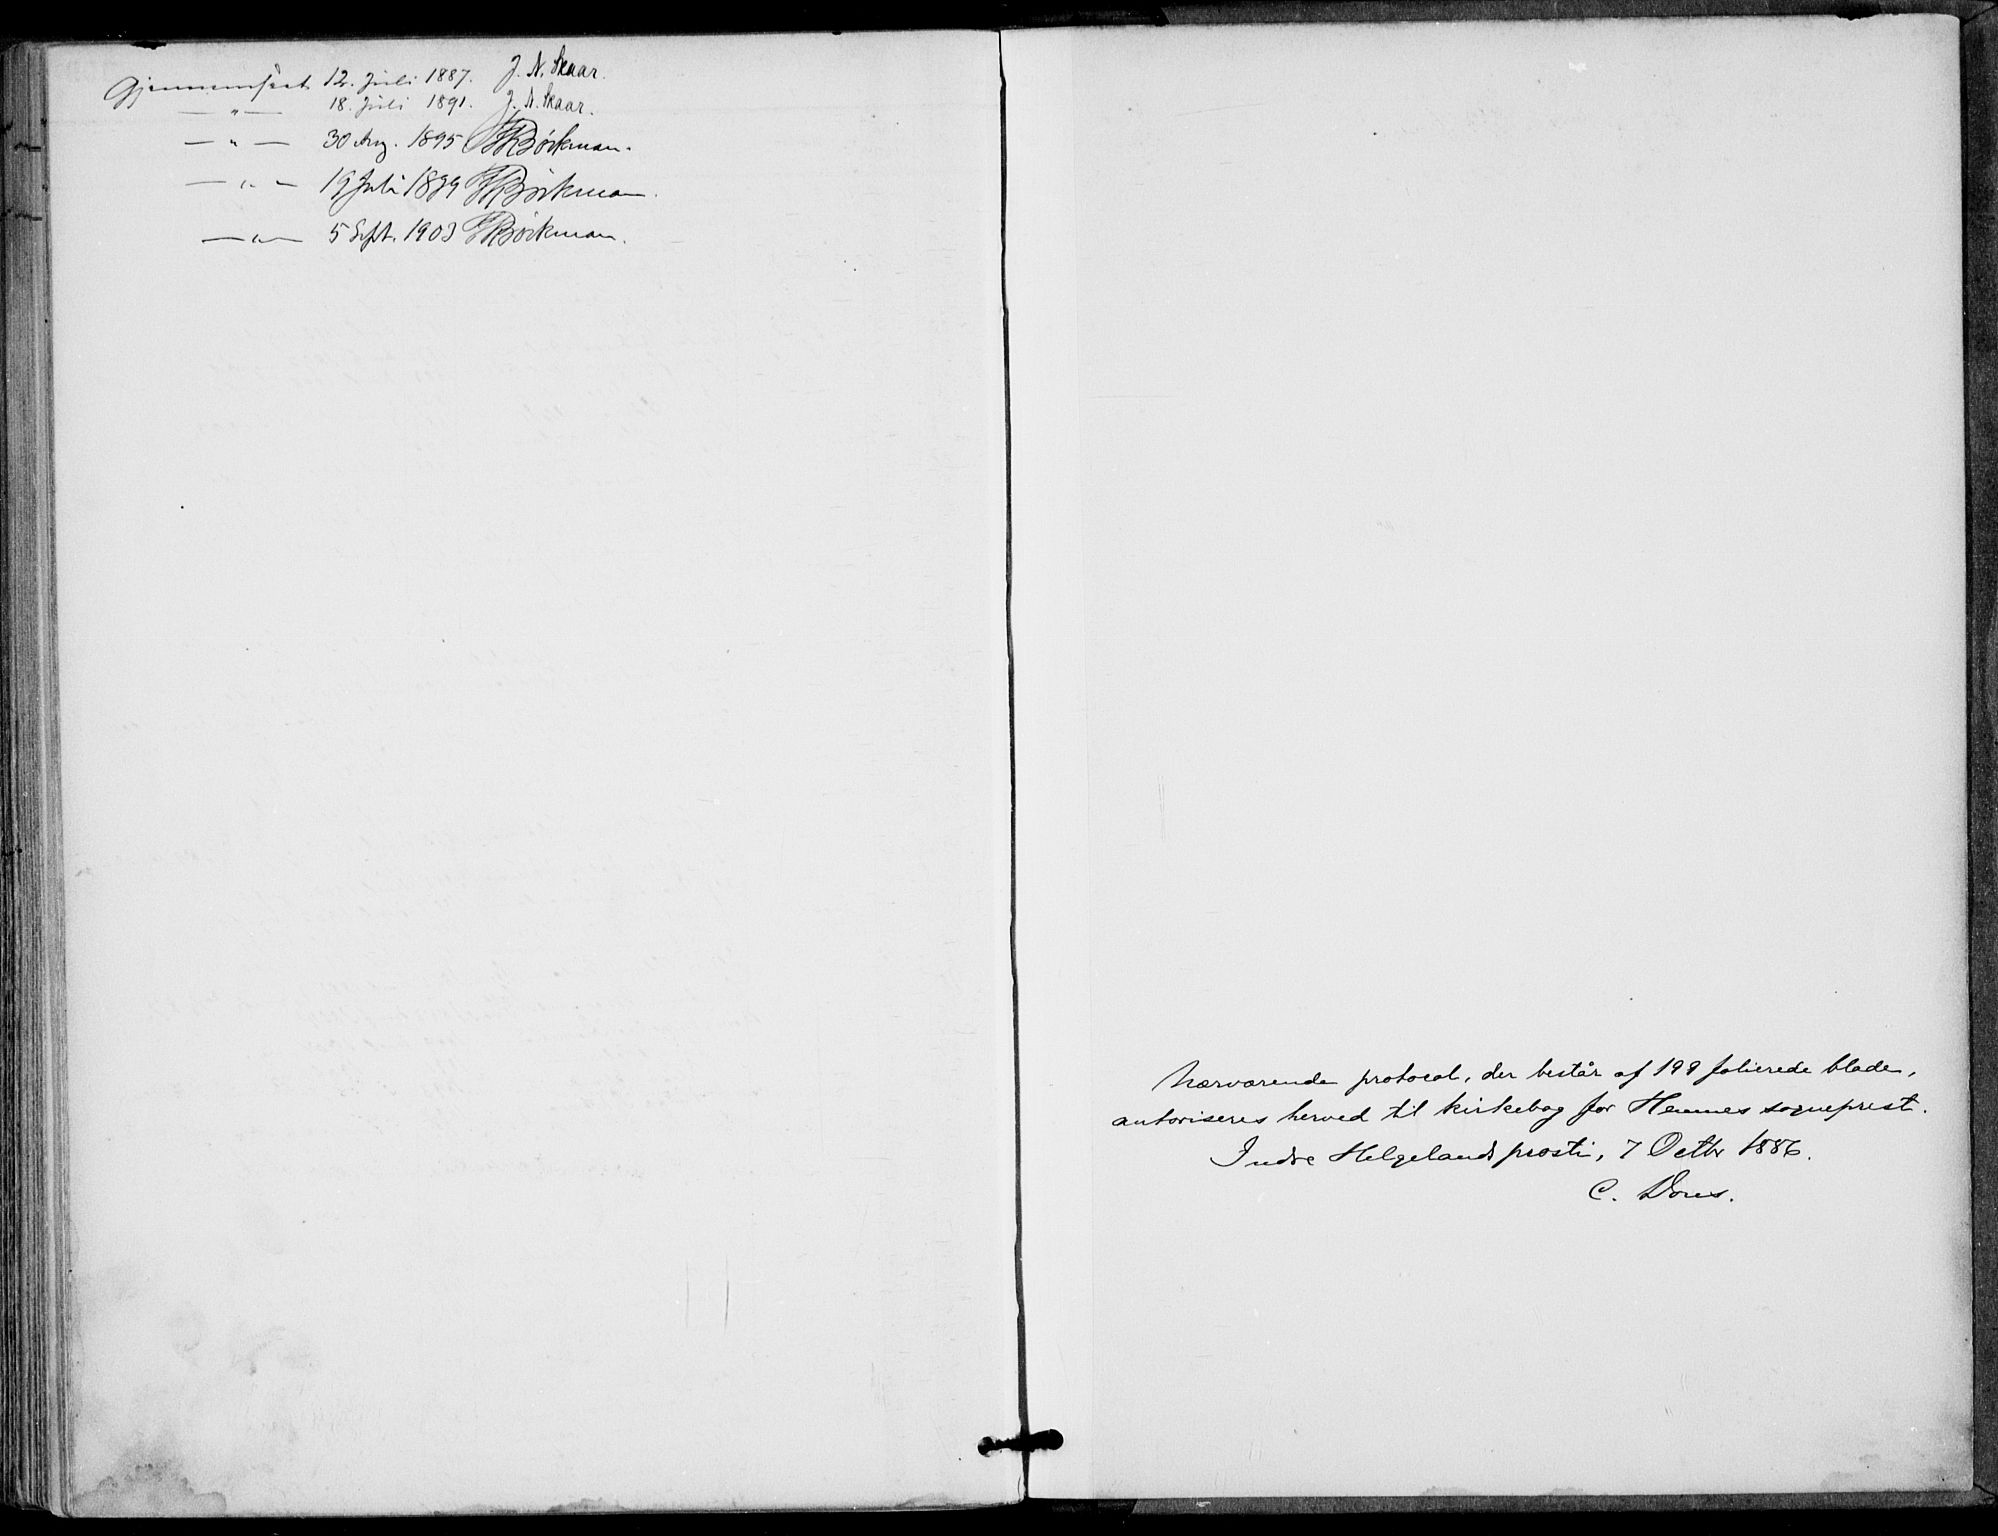 Gjennemseet 12. Juli 1887. J. N. Skaar.
— " — 18. Juli 1891. J. N. Skaar.
— " — 30 Aug. 1895 Bøckman.
— " — 19 Juli 1899 Bøckman.
— " — 5 Sept. 1903 Bøckman.
Nærværende protocol, der består af 199 folierede blade,
autoriseres herved til kirkebog for Hemnes sogneprest.
Indre Helgelands prosti, 7 Octbr 1886.
C.